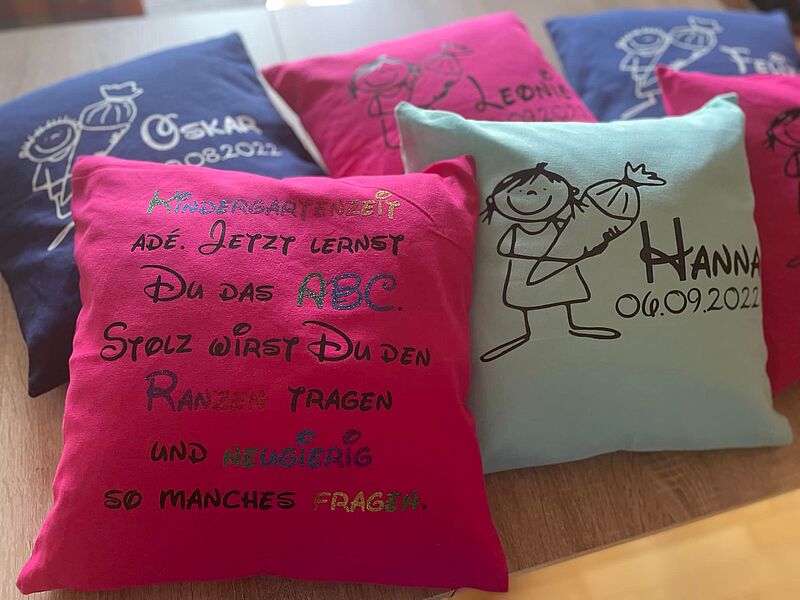 Oskar
.08.2022
Leonie
.09.2022
Kindergartenzeit
adé. Jetzt lernst
Du das ABC.
Stolz wirst Du den
Ranzen tragen
und neugierig
so manches fragen.
Hanna
06.09.2022